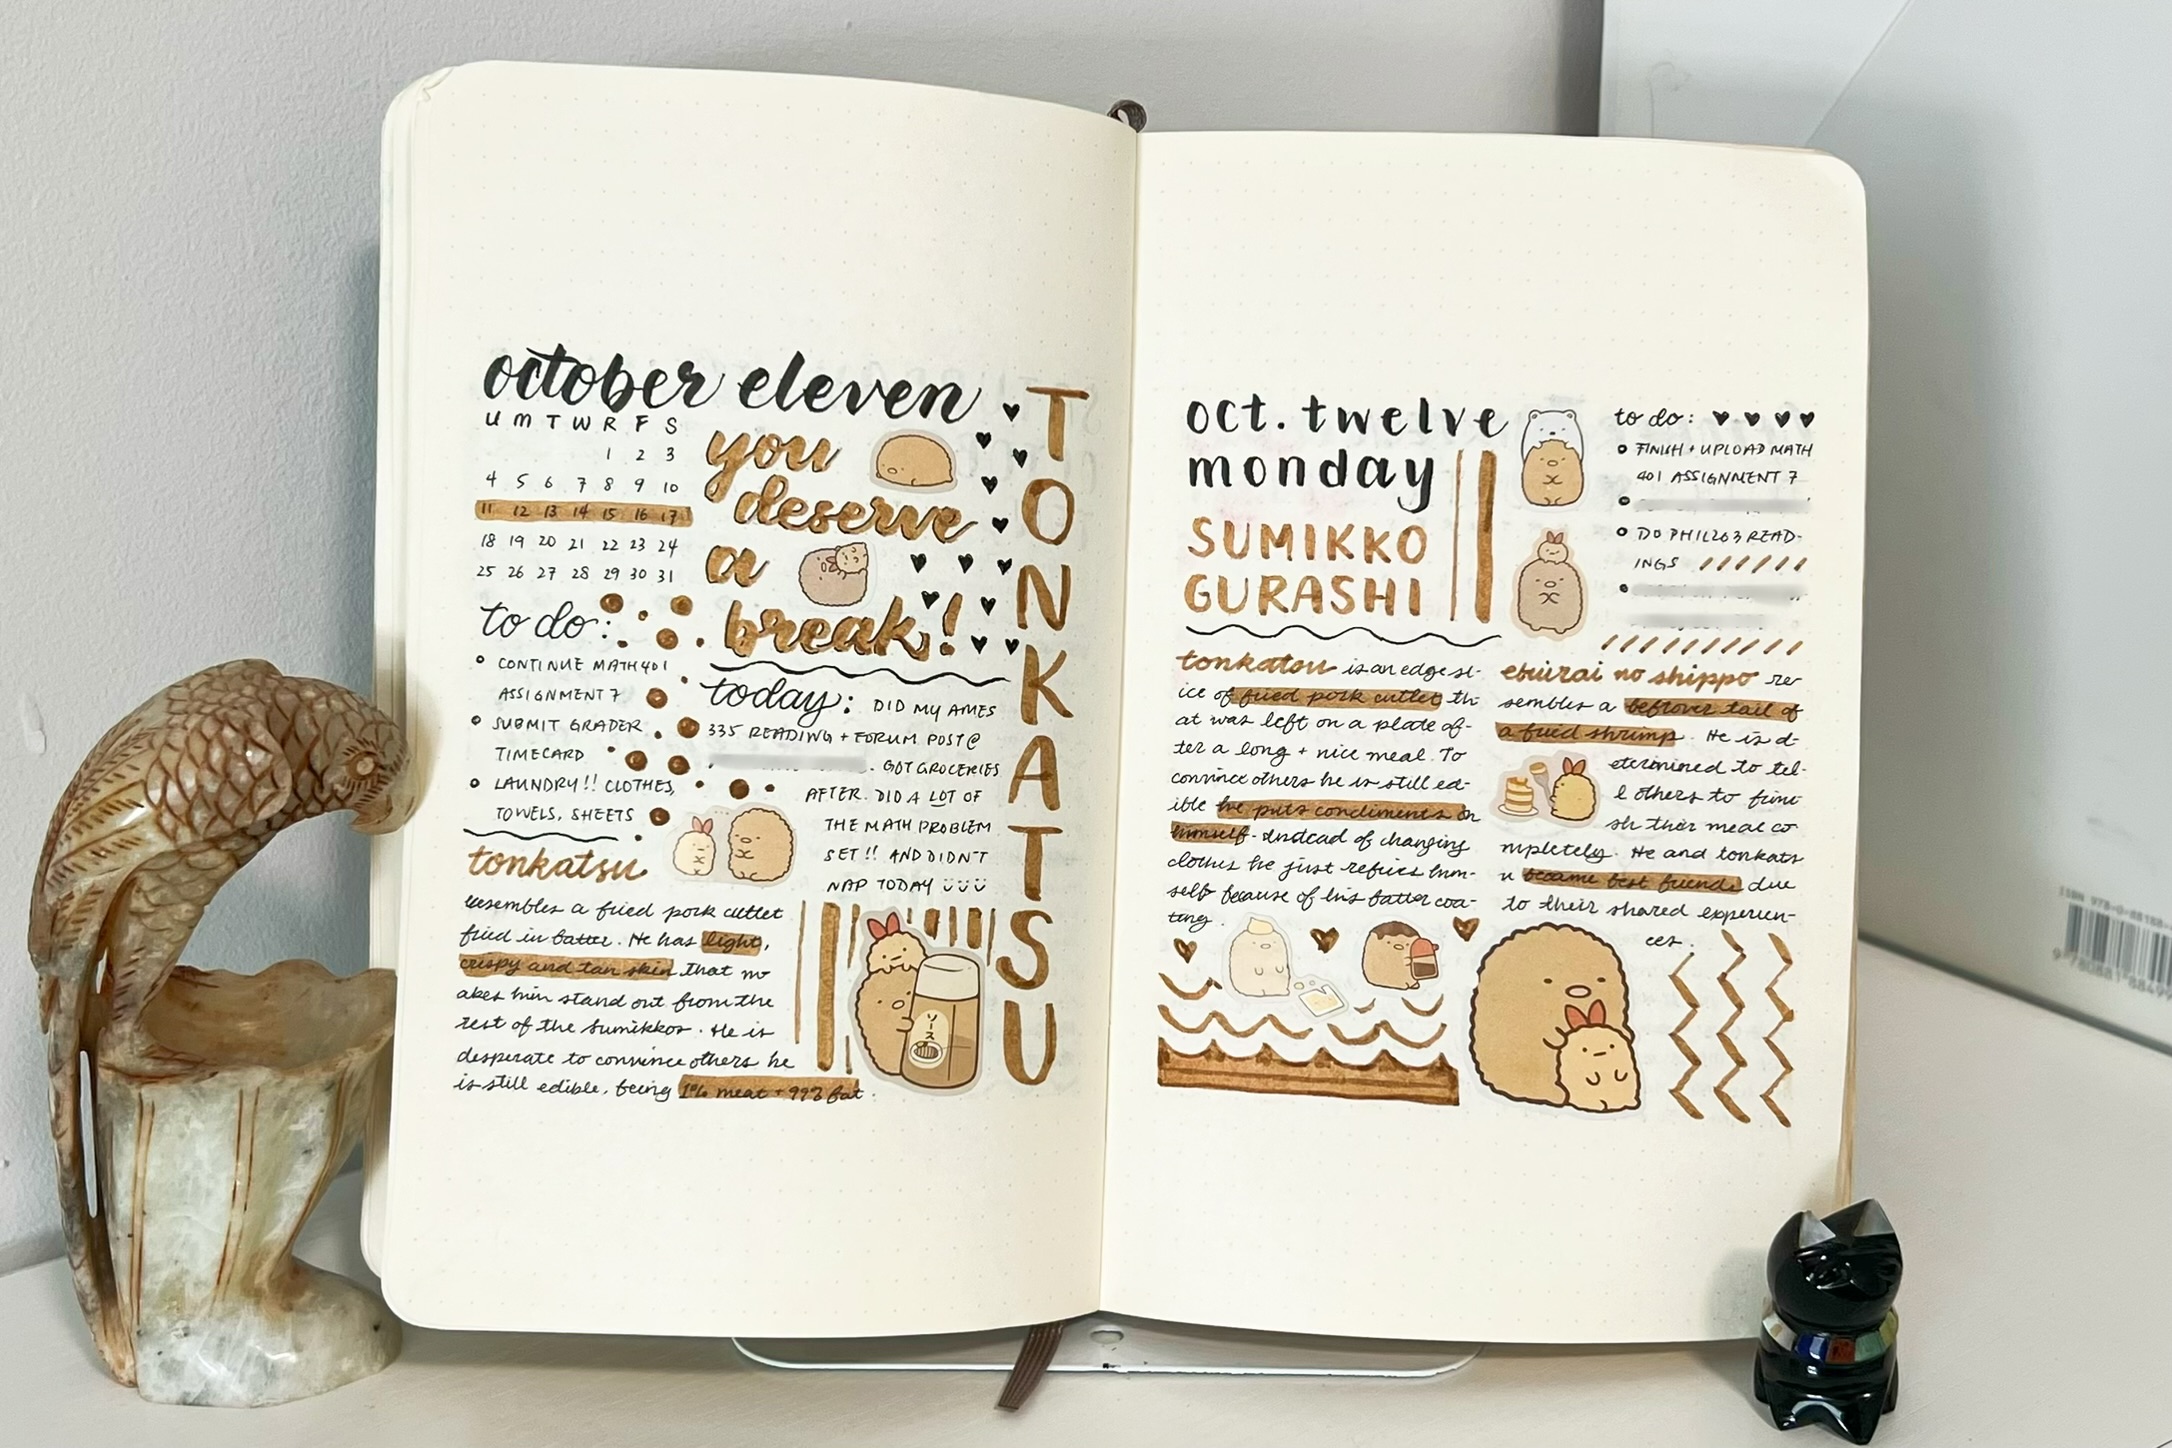 october eleven
U M T W R F S
1 2 3
4 5 6 7 8 9 10
11 12 13 14 15 16 17
18 19 20 21 22 23 24
25 26 27 28 29 30 31
you
deserve
a
break!
TONKATSU
to do:
CONTINUE MATH 401
ASSIGNMENT 7
SUBMIT GRADER
TIMECARD
LAUNDRY!! CLOTHES,
TOWELS, SHEETS
today: DID MY AMES
335 READING + FORUM POST @
. GOT GROCERIES
AFTER. DID A LOT OF
THE MATH PROBLEM
SET!! AND DIDN'T
NAP TODAY
tonkatsu
resembles a fried pork cutlet
fried in batter. He has light,
crispy and tan skin that m
akes him stand out from the
rest of the Sumikkos. He is
desperate to convince others he
is still edible, being 1% meat + 99% fat.
ソース
oct. twelve
monday
SUMIKKO
GURASHI
to do:
FINISH + UPLOAD MATH
401 ASSIGNMENT 7
DO PHIL 203 READ-
INGS
tonkatsu is an edge sl-
ice of fried pork cutlet th
at was left on a plate af-
ter a long + nice meal. To
convince others he is still ed-
ible he puts condiments on
himself. Instead of changing
clothes he just refries him-
self because of his batter coa-
ting.
ebifurai no shippo re-
sembles a leftover tail of
a fried shrimp. He is d-
etermined to tel-
l others to fini
sh their meal co
mpletely. He and tonkats
u became best friends due
to their shared experien-
ces.
ISBN 978-0-88188-